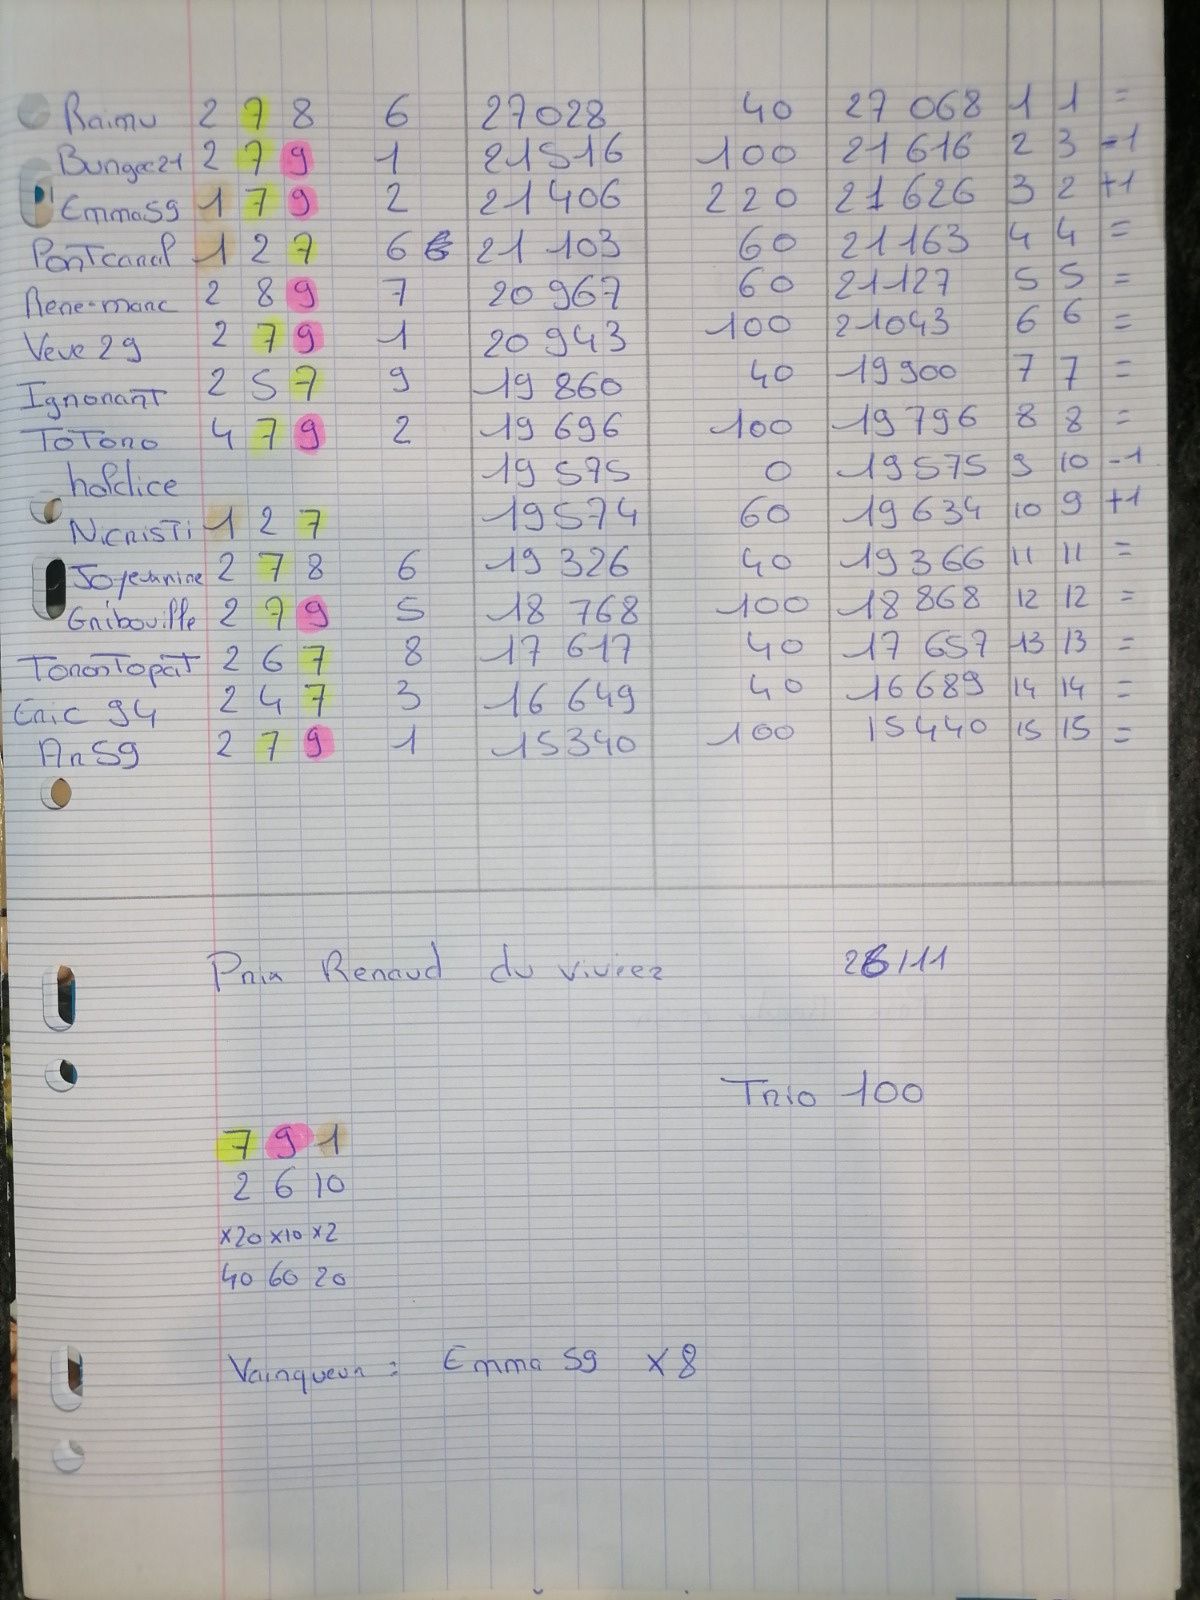 Raimu 2 7 8 6 27028 40 27 068 1 1 =
Bungee21 2 7 9 1 21516 100 21 616 2 3 -1
Emma59 1 7 9 2 21 406 220 21 626 3 2 +1
Pontcanal 1 2 7 6 21 103 60 21 163 4 4 =
Rene-marc 2 8 9 7 20 967 60 21127 5 5 =
Veve 29 2 7 9 1 20 943 100 21043 6 6 =
Ignorant 2 5 7 9 19 860 40 19 900 7 7 =
ToTono 4 7 9 2 19 696 100 19 796 8 8 =
holdice 19 575 0 19 575 9 10 -1
Nicristi 1 2 7 19574 60 19 634 10 9 +1
2 7 8 6 19 326 40 19 366 11 11 =
Gribouille 2 7 9 5 18 768 100 18 868 12 12 =
Torontopat 2 6 7 8 17 617 40 17 657 13 13 =
Eric 94 2 4 7 3 16 649 40 16 689 14 14 =
An59 2 7 9 1 15340 100 15440 15 15 =
Prix Renaud du vivier 26/11
Trio 100
7 9 1
2 6 10
x20 x10 x2
40 60 20
Vainqueur : Emma 59 x 8